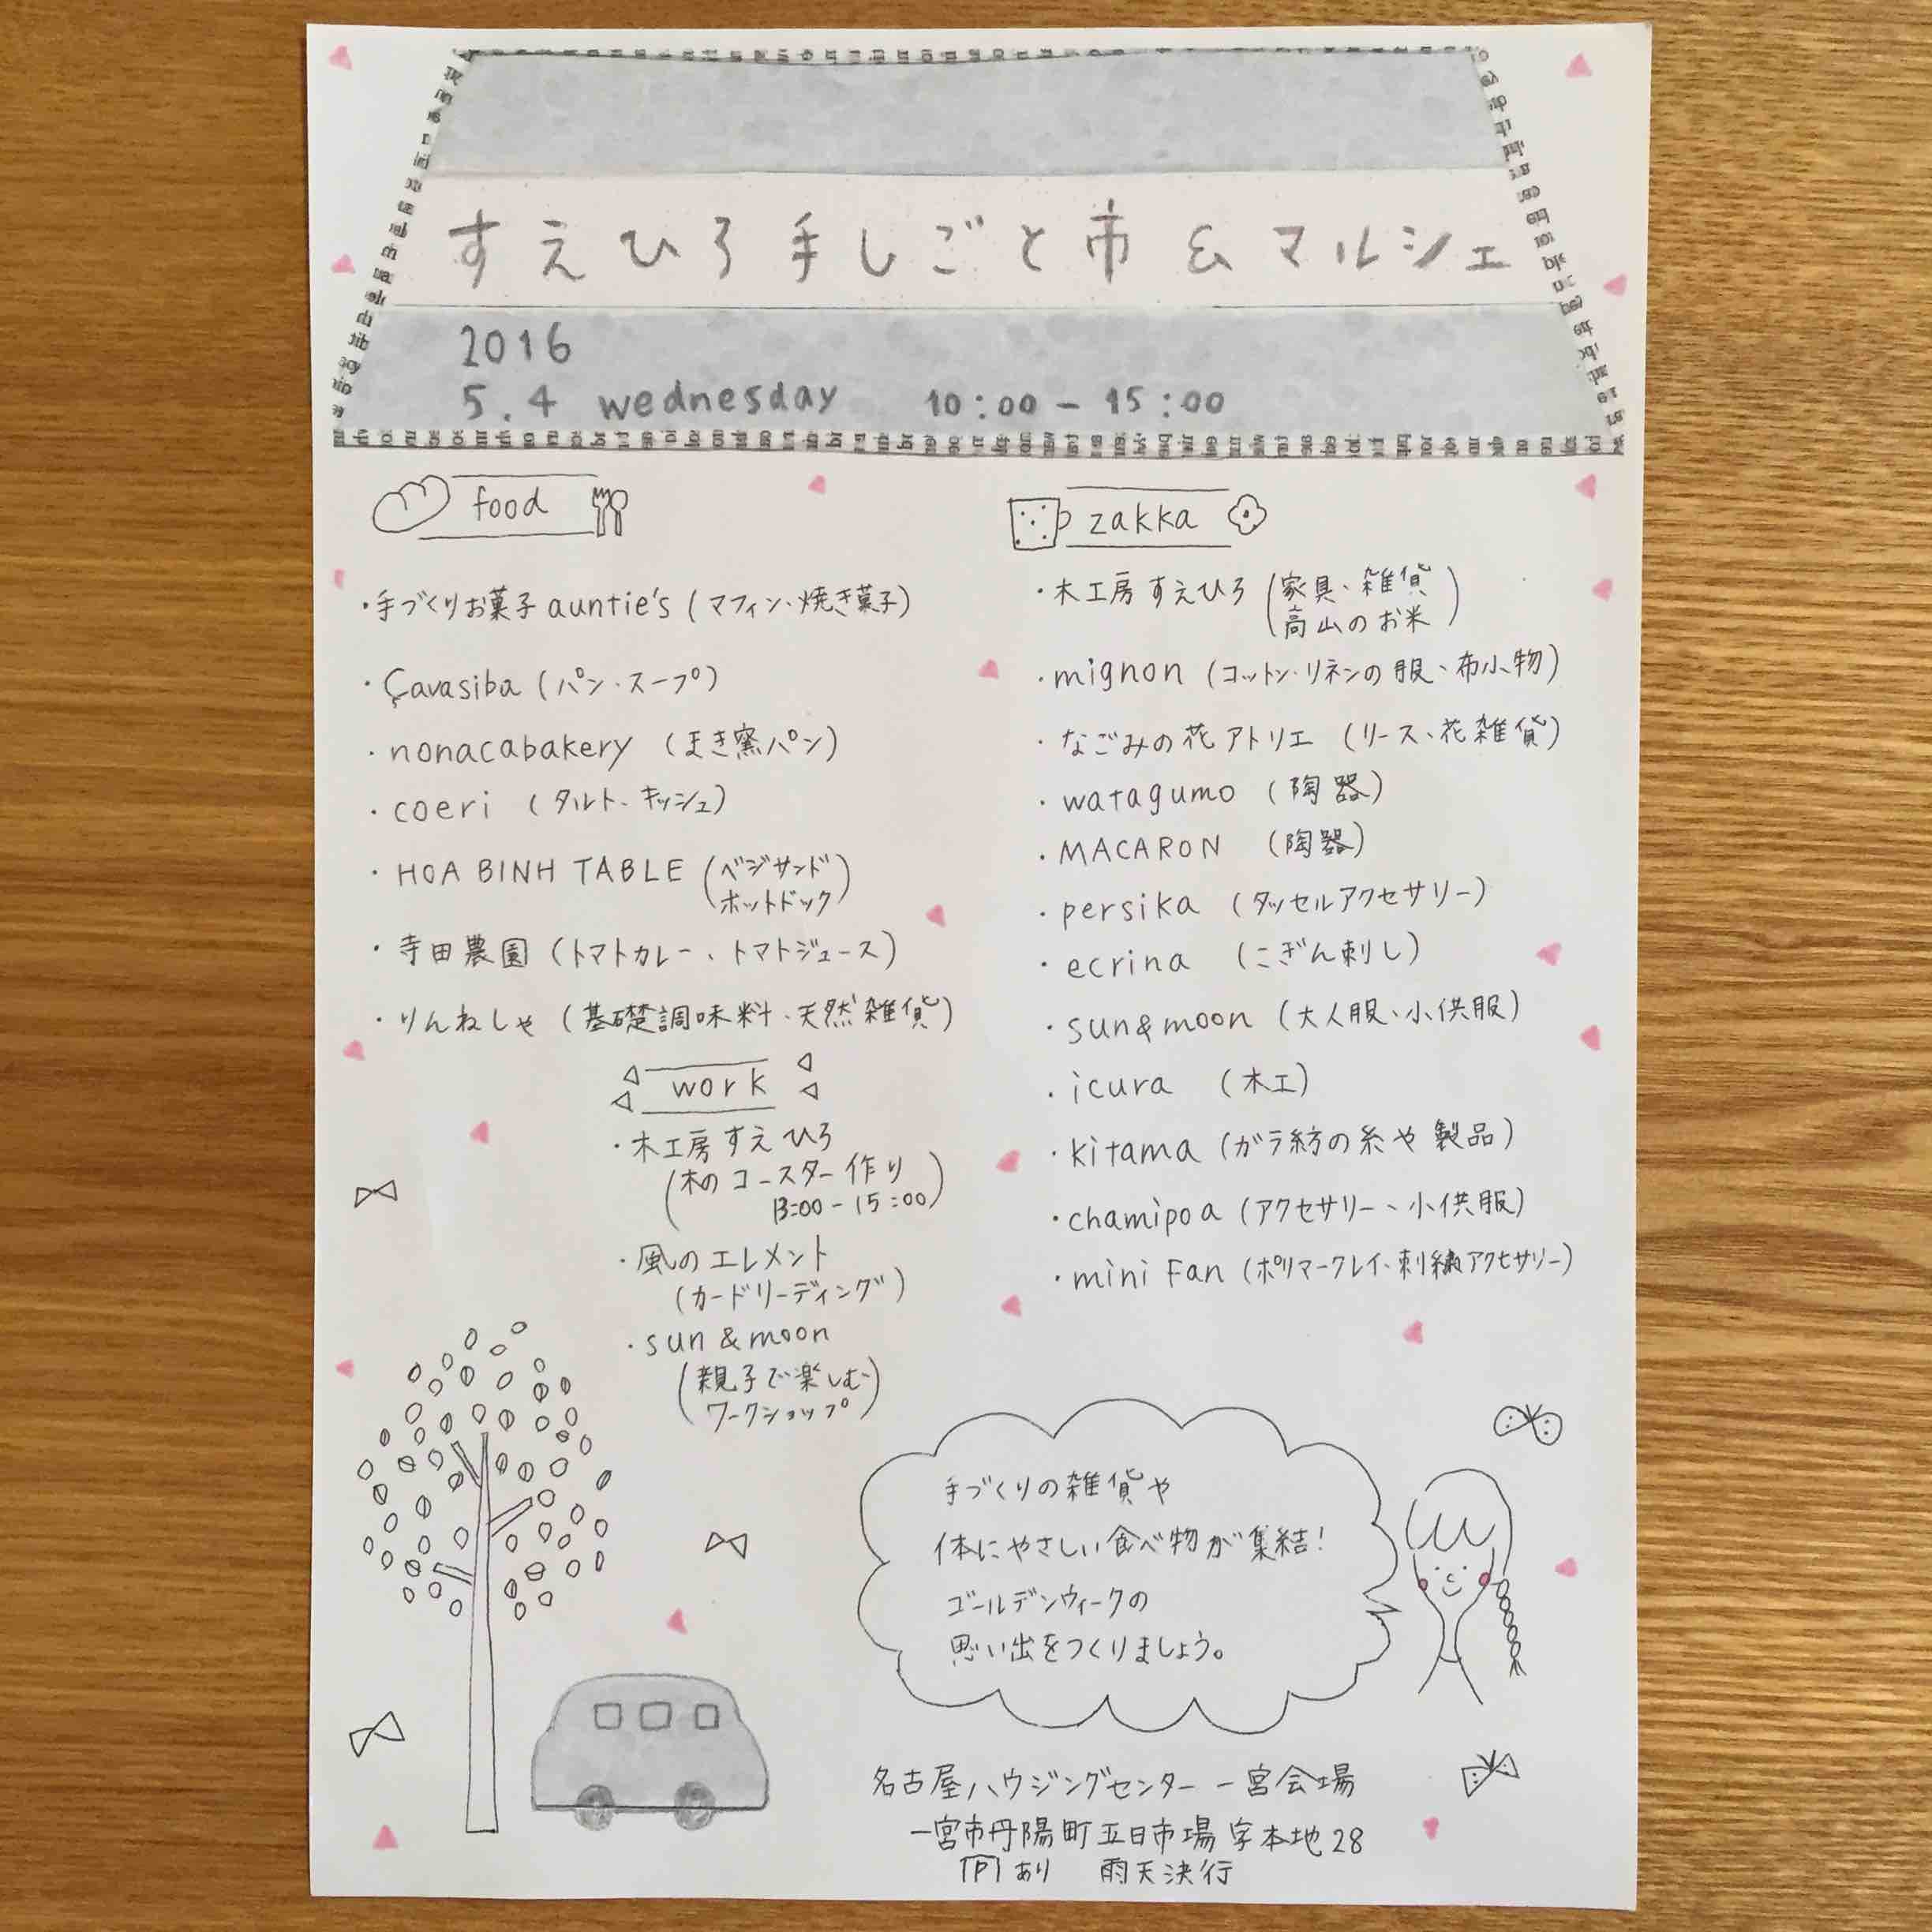 すえひろ手しごと市&マルシェ
2016
5.4 wednesday 10:00-15:00
food
・手づくりお菓子 auntie's (マフィン・焼き菓子)
・Çavasiba (パン・スープ)
・nonacabakery (まき窯パン)
・coeri (タルト、キッシュ)
・HOA BINH TABLE (ベジサンド
ホットドック)
・寺田農園 (トマトカレー、トマトジュース)
・りんねしゃ (基礎調味料、天然雑貨)
work
・木工房すえひろ
(木のコースター作り
13:00-15:00)
・風のエレメント
(カードリーディング)
・sun&moon
(親子で楽しむ
ワークショップ)
zakka
・木工房すえひろ (家具、雑貨
高山のお米)
・mignon (コットン・リネンの服、布小物)
・なごみの花アトリエ (リース、花雑貨)
・watagumo (陶器)
・MACARON (陶器)
・persika (タッセルアクセサリー)
・ecrina (こぎん刺し)
・sun&moon (大人服、小供服)
・icura (木工)
・kitama (ガラ紡の糸や製品)
・chamipoa (アクセサリー、小供服)
・mini Fan (ポリマークレイ、刺繍アクセサリー)
手づくりの雑貨や
体にやさしい食べ物が集結!
ゴールデンウィークの
思い出をつくりましょう。
名古屋ハウジングセンター一宮会場
一宮市丹陽町五日市場字本地28
Pあり 雨天決行